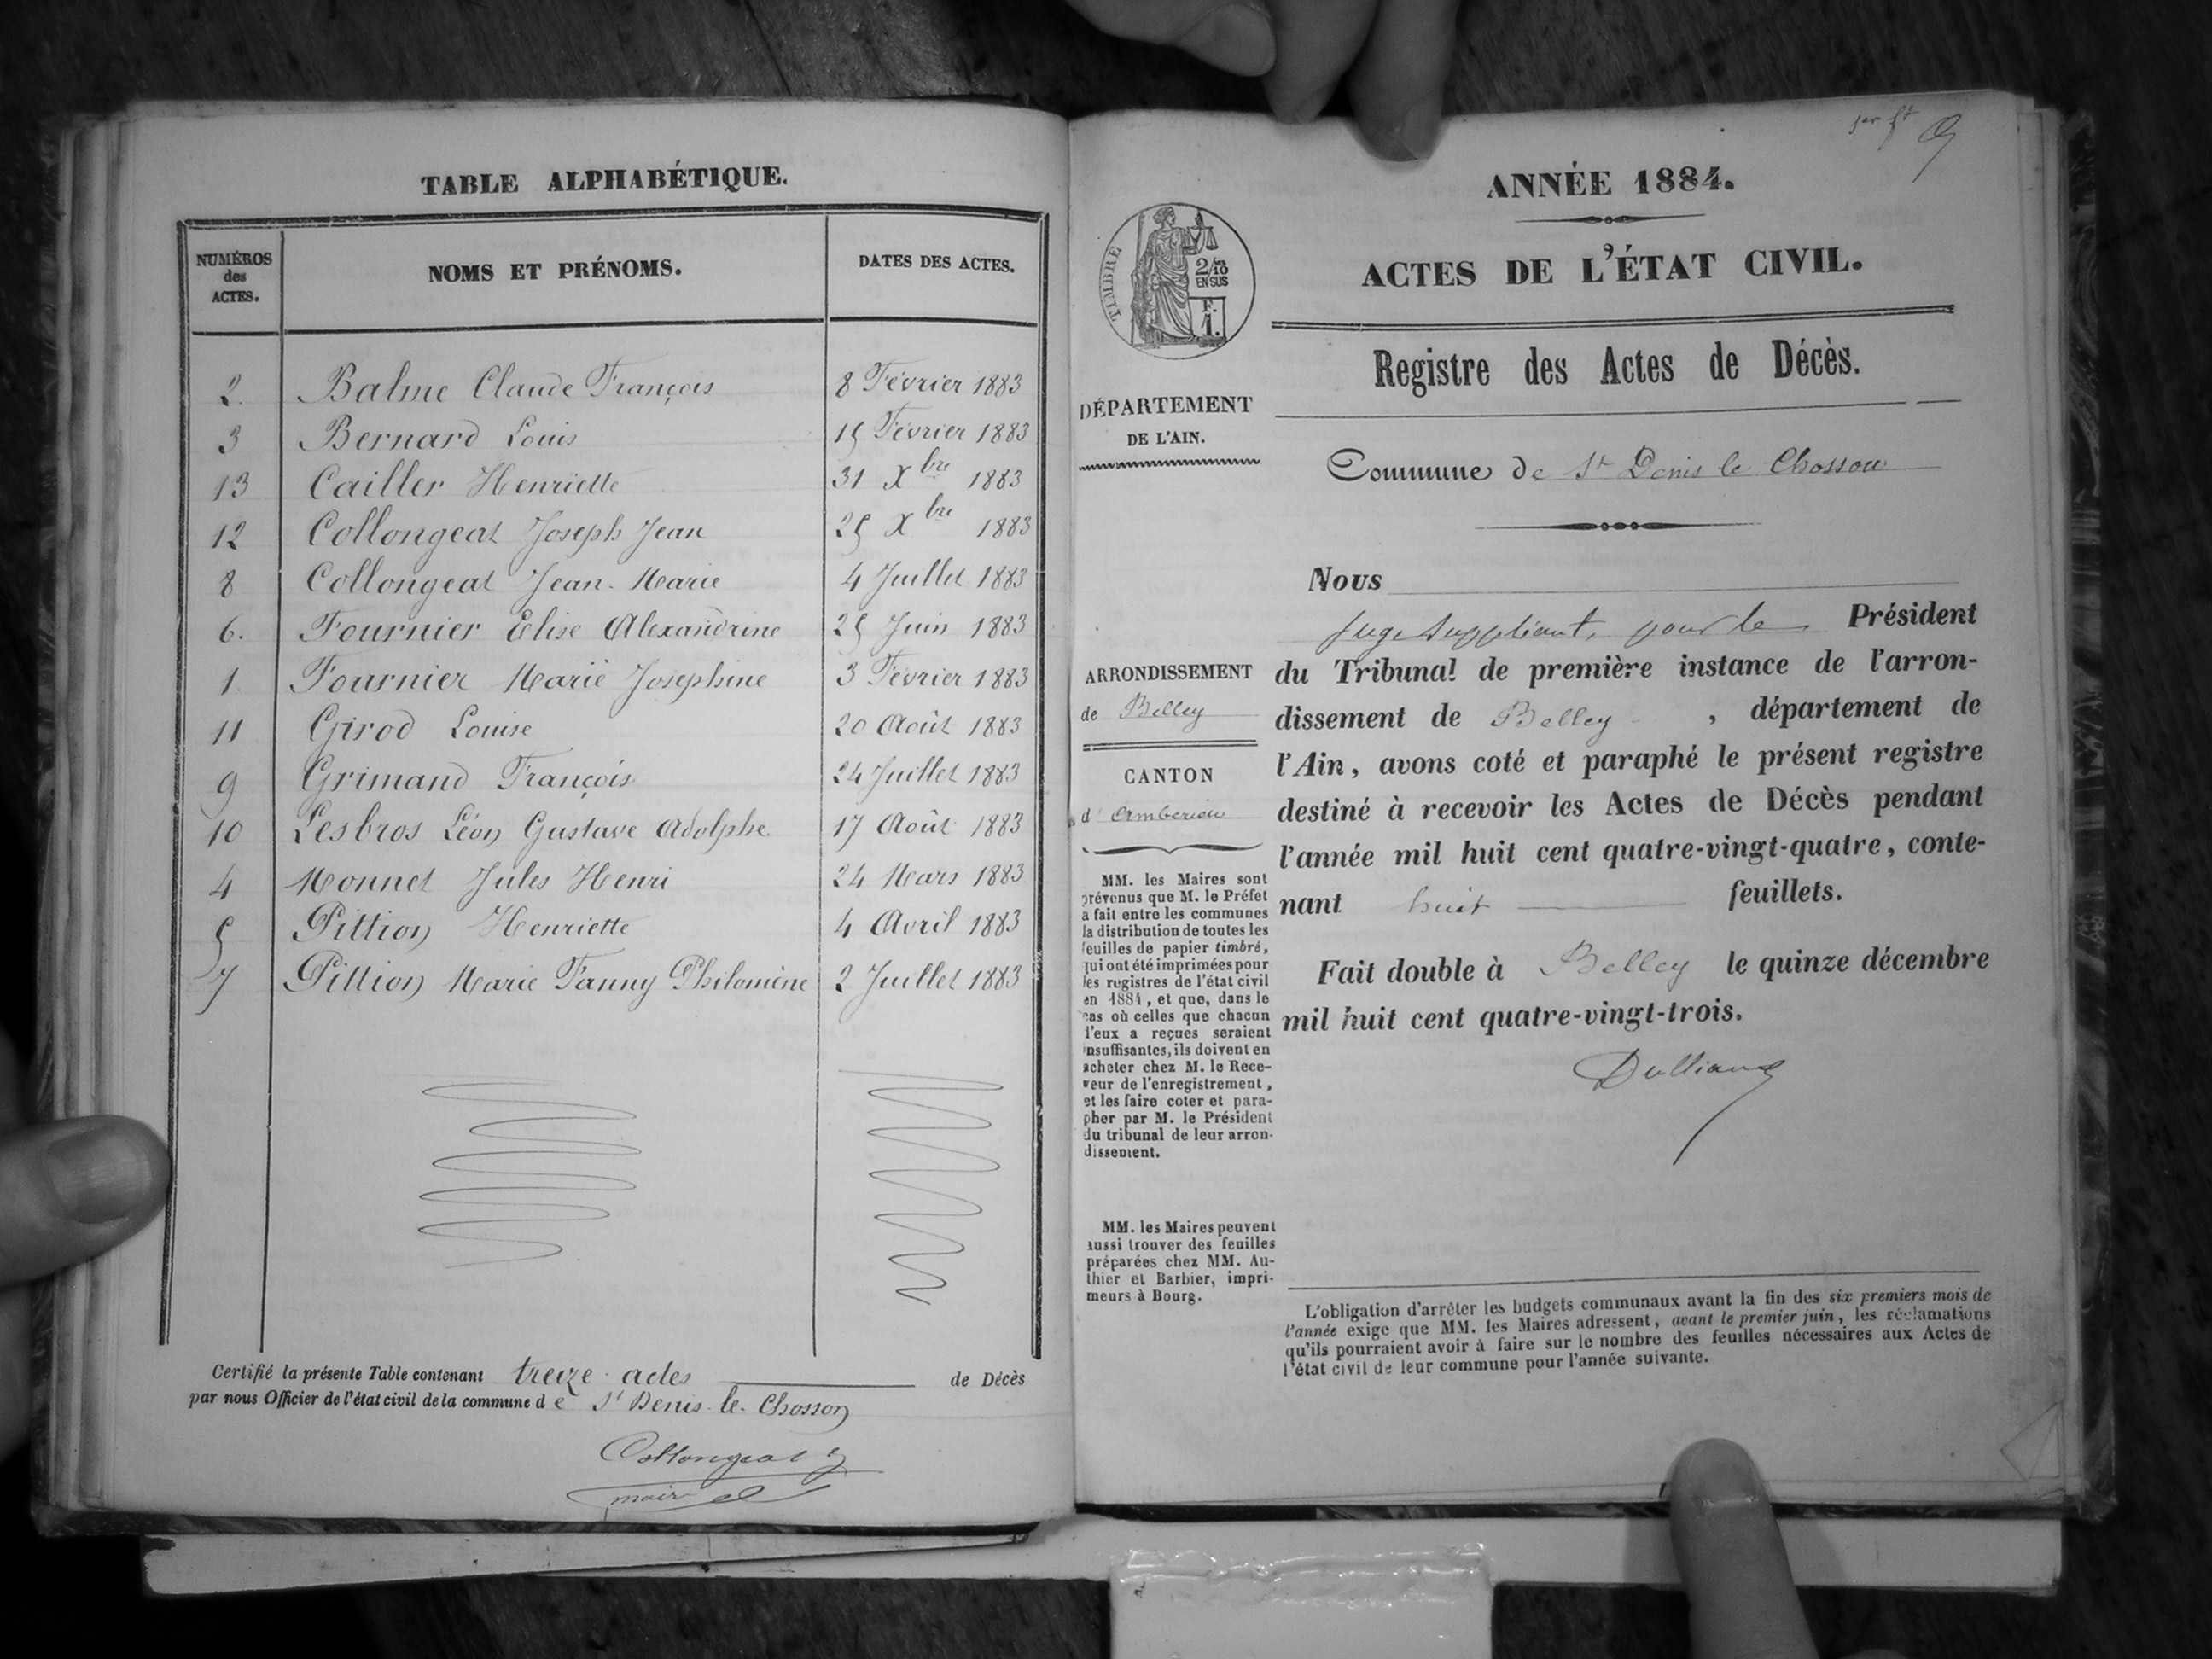 TABLE ALPHABÉTIQUE.
NUMÉROS
des
ACTES.
NOMS ET PRÉNOMS.
DATES DES ACTES.
2. Balme Claude François 8 Février 1883
3 Bernard Louis 15 Février 1883
13 Cailler Henriette 31 Xbre 1883
12 Collongeat Joseph Jean 25 Xbre 1883
8 Collongeat Jean-Marie 4 Juillet 1883
6. Fournier Elise Alexandrine 25 Juin 1883
1. Fournier Marie Josephine 3 Février 1883
11 Girod Louise 20 Août 1883
9 Grimand François 24 Juillet 1883
10 Lesbros Léon Gustave Adolphe 17 Août 1883
4 Monnet Jules Henri 24 Mars 1883
5 Pittion Henriette 4 Avril 1883
7 Pittion Marie Fanny Philomène 2 Juillet 1883
Certifié la présente Table contenant treize actes de Décès
par nous Officier de l'état civil de la commune de St Denis-le-Chosson
Collongeat
maire
ANNÉE 1884.
ACTES DE L'ÉTAT CIVIL.
TIMBRE
2/10
EN SUS
F.
1.
Registre des Actes de Décès.
DÉPARTEMENT
DE L'AIN.
Commune de St Denis le Chosson
Nous
juge suppléant, pour le Président
du Tribunal de première instance de l'arron-
dissement de Belley, département de
l'Ain, avons coté et paraphé le présent registre
destiné à recevoir les Actes de Décès pendant
l'année mil huit cent quatre-vingt-quatre, conte-
nant huit feuillets.
Fait double à Belley le quinze décembre
mil huit cent quatre-vingt-trois.
ARRONDISSEMENT
de Belley
CANTON
d'Amberieu
MM. les Maires sont
prévenus que M. le Préfet
a fait entre les communes
la distribution de toutes les
feuilles de papier timbré,
qui ont été imprimées pour
les registres de l'état civil
en 1884, et que, dans le
cas où celles que chacun
d'eux a reçues seraient
insuffisantes, ils doivent en
acheter chez M. le Rece-
veur de l'enregistrement,
et les faire coter et para-
pher par M. le Président
du tribunal de leur arron-
dissement.
MM. les Maires peuvent
aussi trouver des feuilles
préparées chez MM. Au-
thier et Barbier, impri-
meurs à Bourg.
L'obligation d'arrêter les budgets communaux avant la fin des six premiers mois de
l'année exige que MM. les Maires adressent, avant le premier juin, les réclamations
qu'ils pourraient avoir à faire sur le nombre des feuilles nécessaires aux Actes de
l'état civil de leur commune pour l'année suivante.